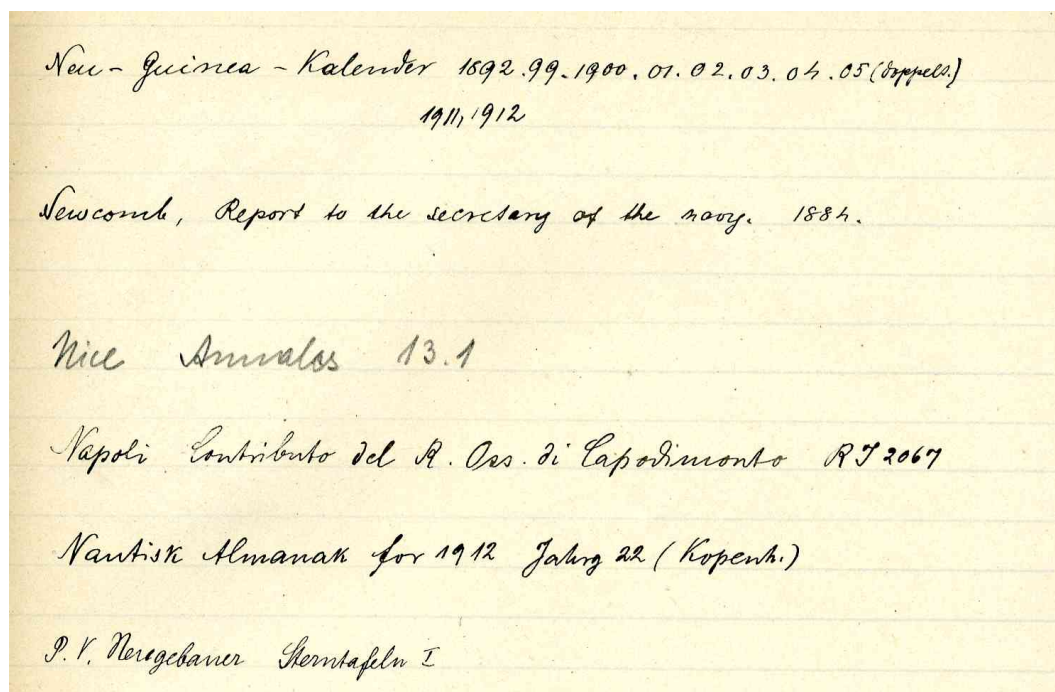 Neu-Guinea-Kalender 1892.99.1900.01.02.03.04.05 (doppels.)
1911, 1912
Newcomb, Report to the secretary of the navy. 1884.
Nice Annales 13.1
Napoli Contributo del R. Oss. di Capodimonto RJ 2067
Nautisk Almanak for 1912 Jahrg 22 (Kopenh.)
P. V. Neugebauer Sterntafeln I